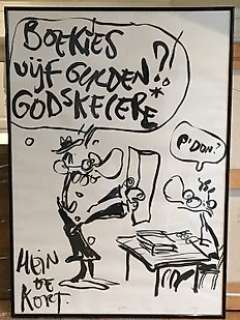 BOEKIES
VIJF GULDEN?!
GODSKELERE*
P'DON?
HEIN
DE
KORT.